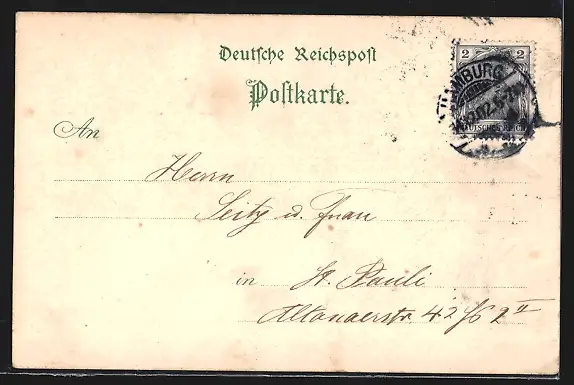 Deutsche Reichspost
Postkarte.
2 2
HAMBURG
DEUTSCHES REICH
An
Herrn
Seitz u. Frau
in St. Pauli
Altonaerstr. 42 II